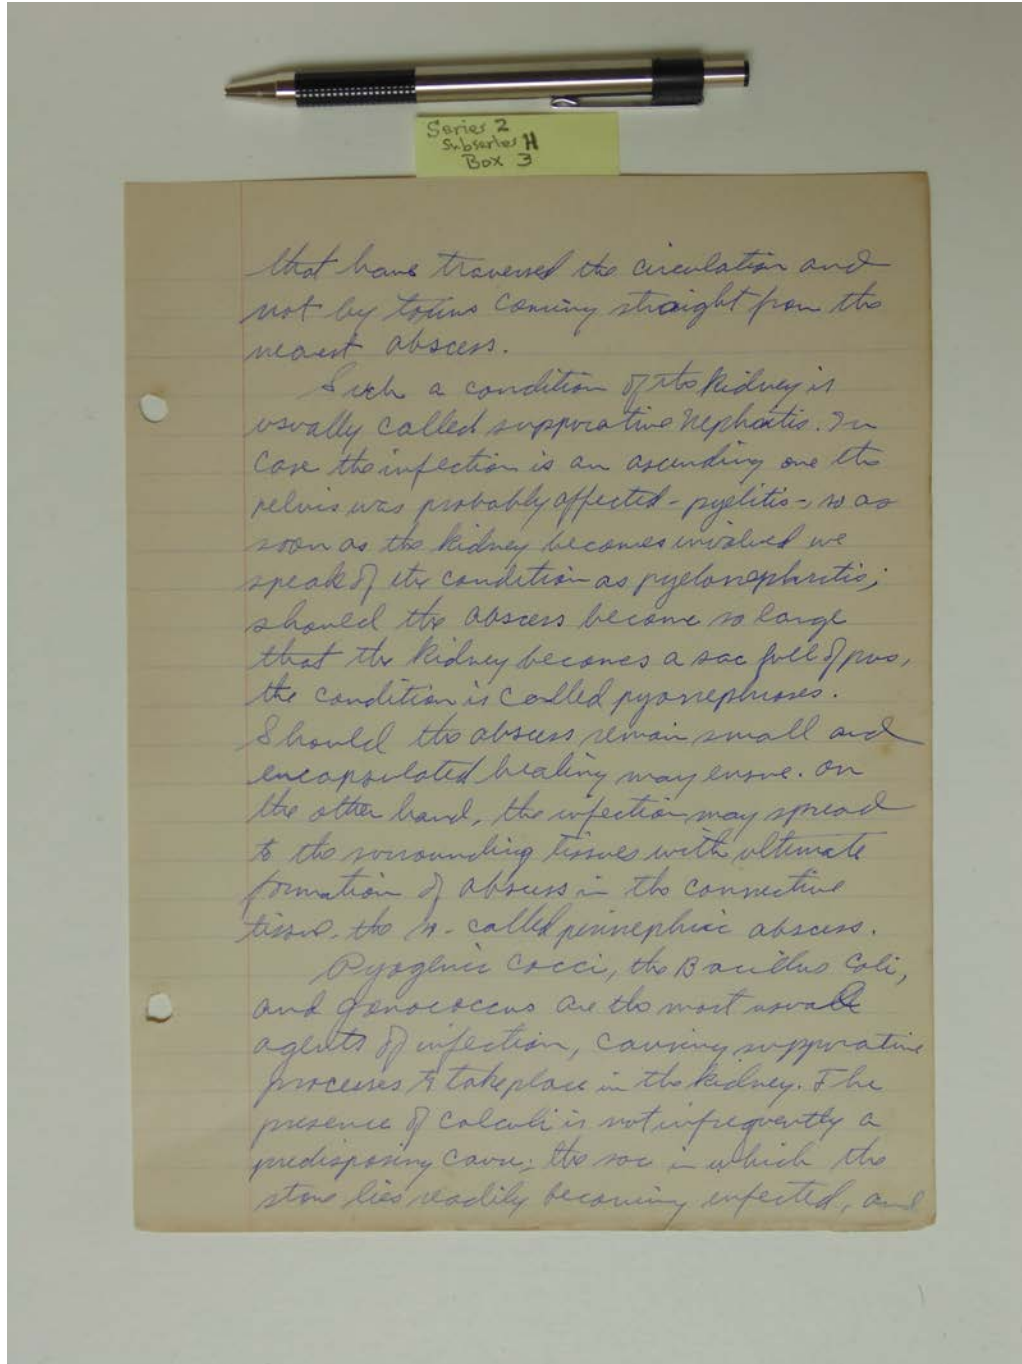 Series 2
Subseries H
Box 3
that have traversed the circulation and
not by toxins coming straight from the
nearest abscess.
Such a condition of the kidney is
usually called suppurative nephritis. In
case the infection is an ascending one the
pelvis was probably affected - pyelitis -, so as
soon as the kidney becomes involved we
speak of the condition as pyelonephritis;
should the abscess become so large
that the kidney becomes a sac full of pus,
the condition is called pyonephroses.
Should the abscess remain small and
encapsulated healing may ensue. On
the other hand, the infection may spread
to the surrounding tissues with ultimate
formation of abscess in the connective
tissue, the so-called perinephric abscess.
Pyogenic cocci, the Bacillus Coli,
and gonococcus are the most usual
agents of infection, causing suppurative
processes to take place in the kidney. The
presence of calculi is not infrequently a
predisposing cause; the sac in which the
stone lies readily becoming infected, and